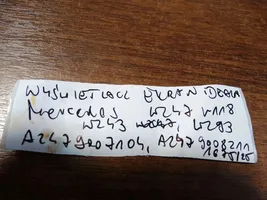 WYŚWIETLACZ EKRAN
Mercedes W247 W118
W243 W293
A2479007104, A247 9008211